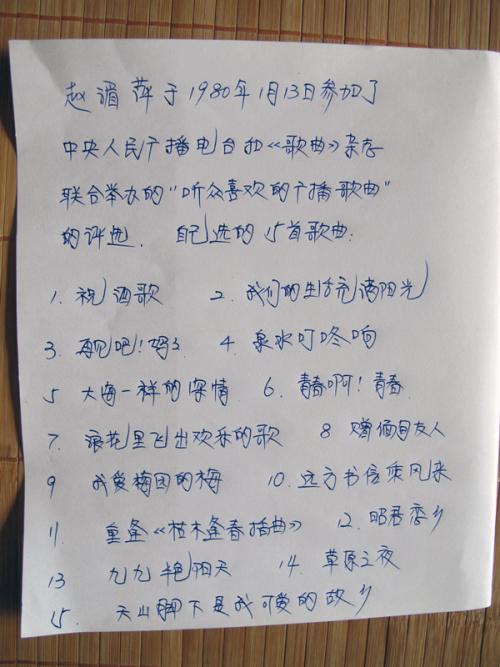 赵湄萍于1980年1月13日参加了
中央人民广播电台和《歌曲》杂志
联合举办的“听众喜欢的广播歌曲”
的评选. 自己选的15首歌曲:
1. 祝酒歌 2. 我们的生活充满阳光
3. 再见吧!妈妈 4. 泉水叮咚响
5 大海一样的深情 6. 青春啊!青春
7. 浪花里飞出欢乐的歌 8 赠俩国友人
9 我爱梅园的梅 10. 远方书信乘风来
11. 重逢《枯木逢春插曲》 12. 昭君恋乡
13 九九艳阳天 14. 草原之夜
15. 天山脚下是我可爱的故乡